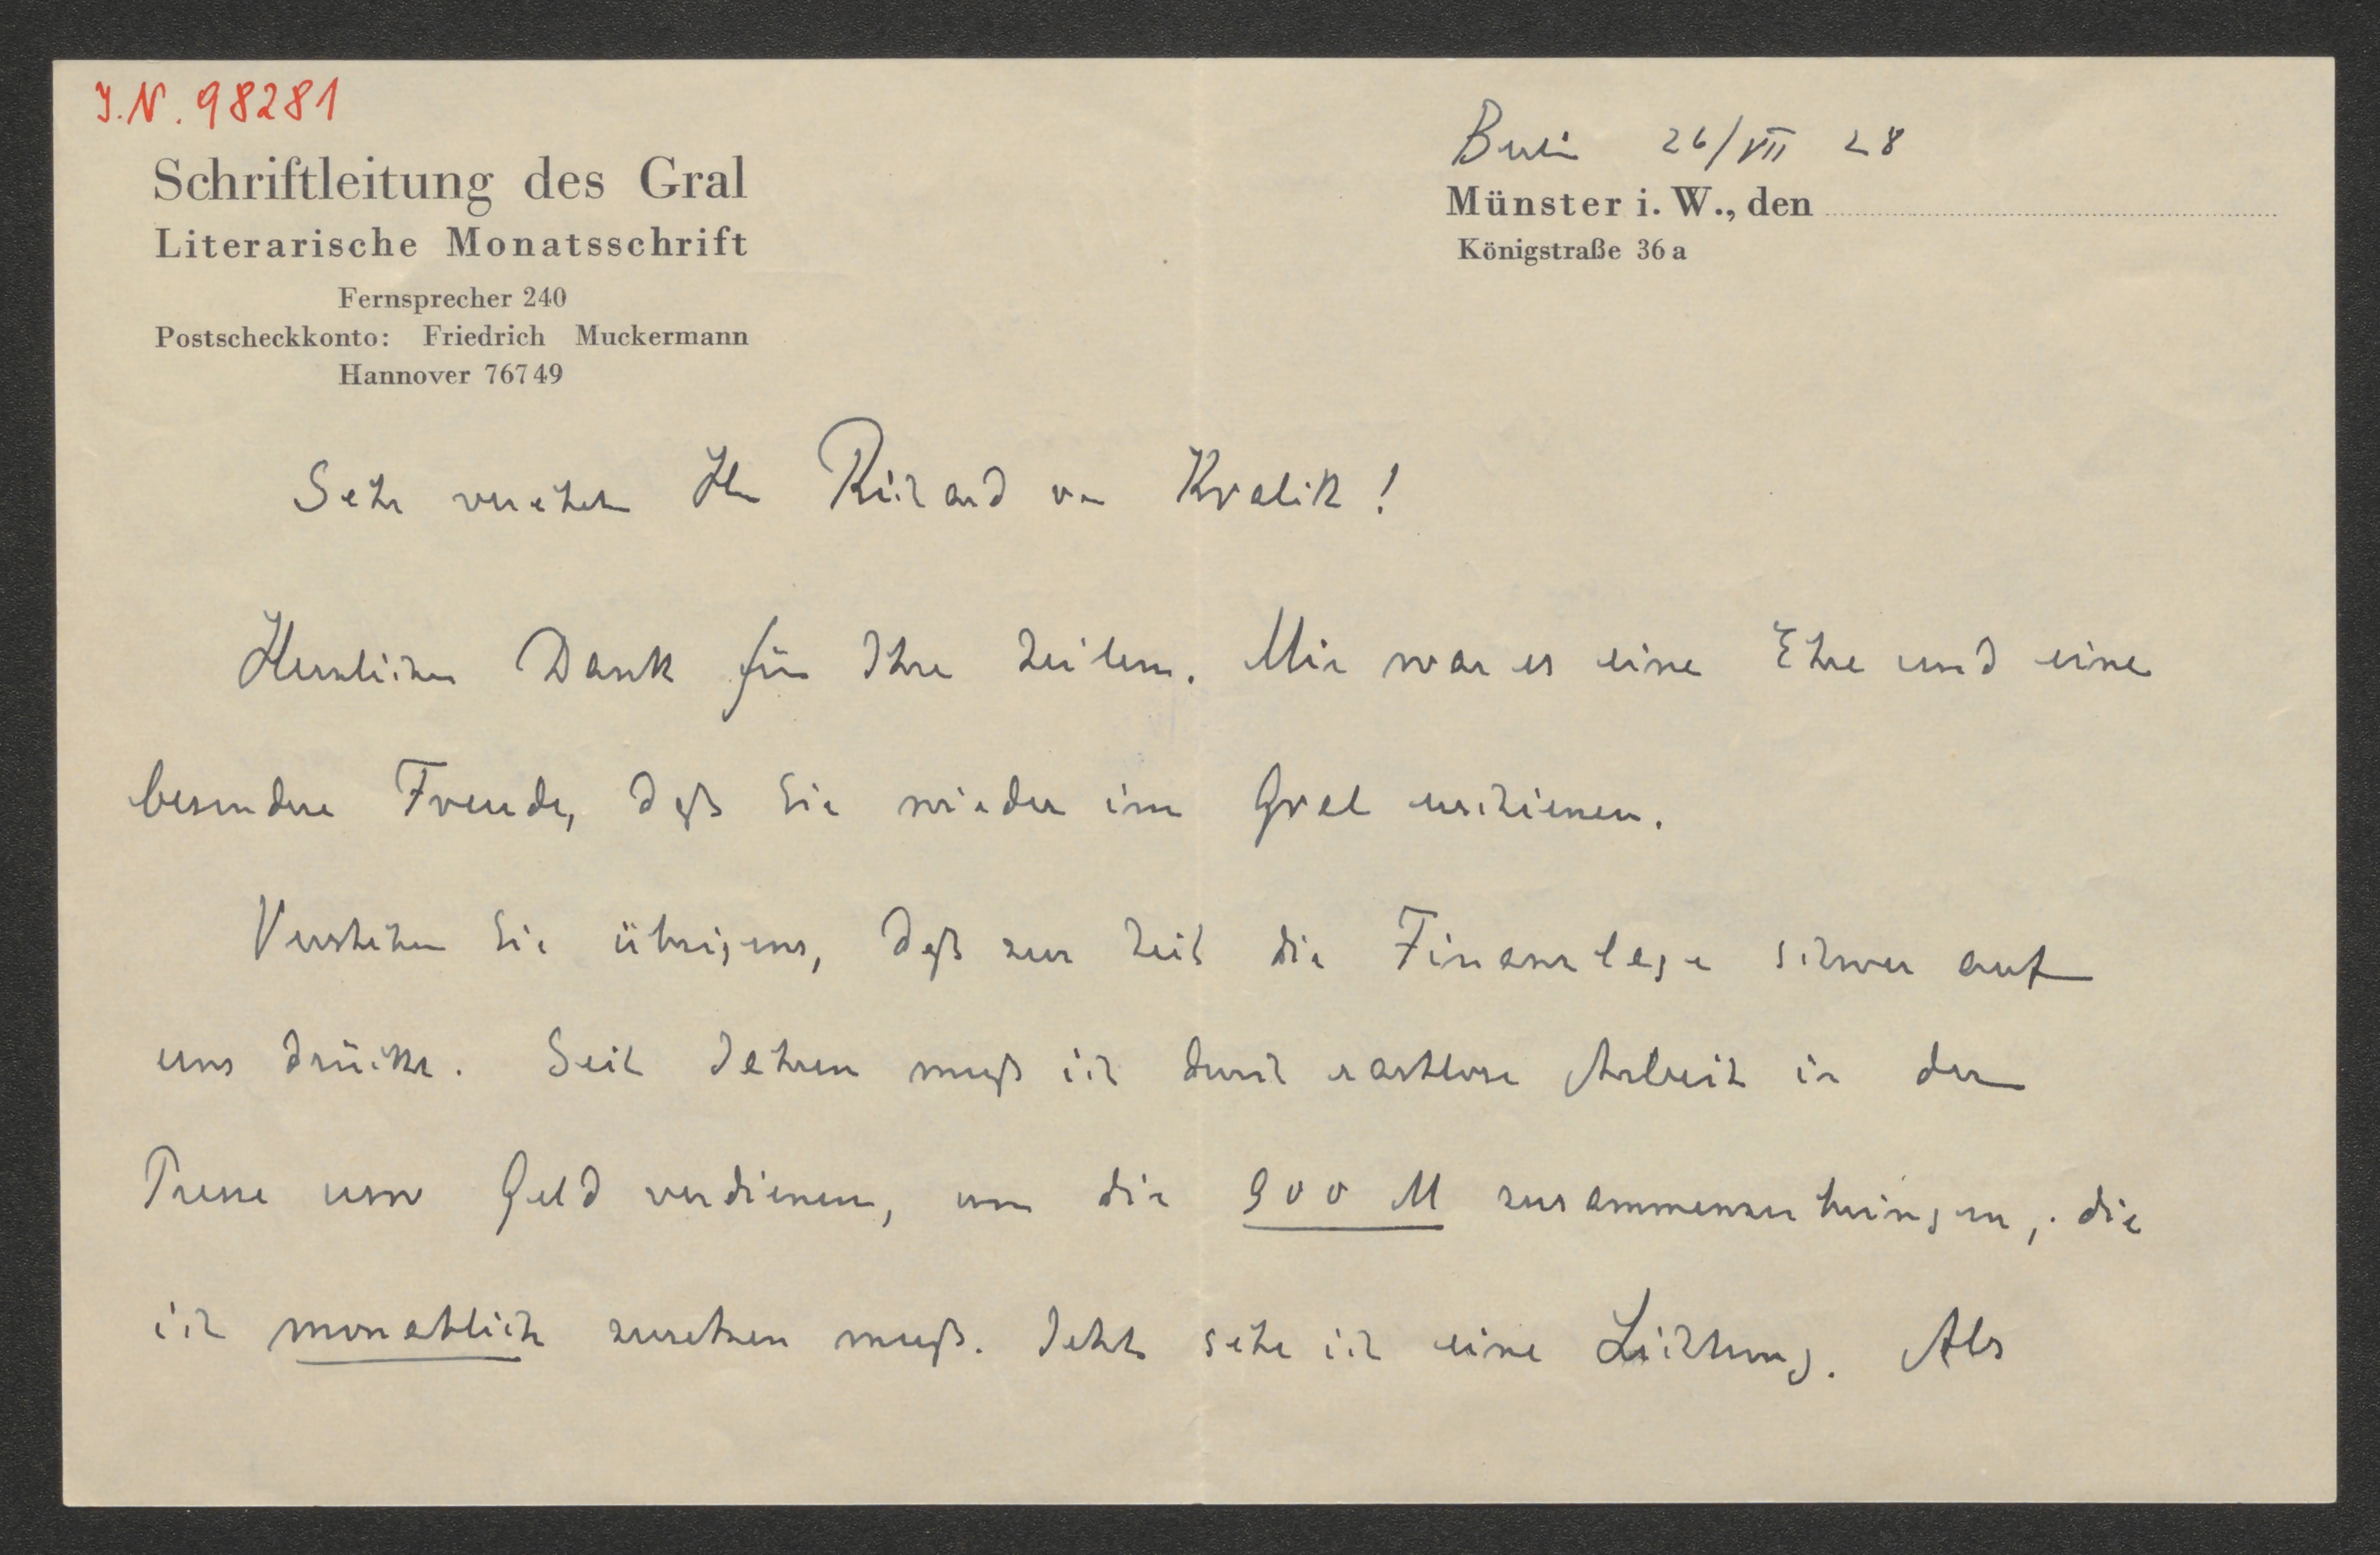 J.N. 98281
Schriftleitung des Gral
Literarische Monatsschrift
Fernsprecher 240
Postscheckkonto: Friedrich Muckermann
Hannover 76749
Berlin 26/VII 28
Münster i. W., den
Königstraße 36 a
Sehr verehrter Herr Richard von Kralik!
Herzlichen Dank für Ihre Zeilen. Mir war es eine Ehre und eine
besondere Freude, daß Sie wieder im Gral erschienen.
Verstehen Sie übrigens, daß zur Zeit die Finanzlage schwer auf
uns drückt. Seit Jahren muß ich durch rastlose Arbeit in der
Presse usw Geld verdienen, um die 900 M zusammenzubringen, die
ich monatlich zusetzen muß. Jetzt sehe ich eine Lichtung. Als